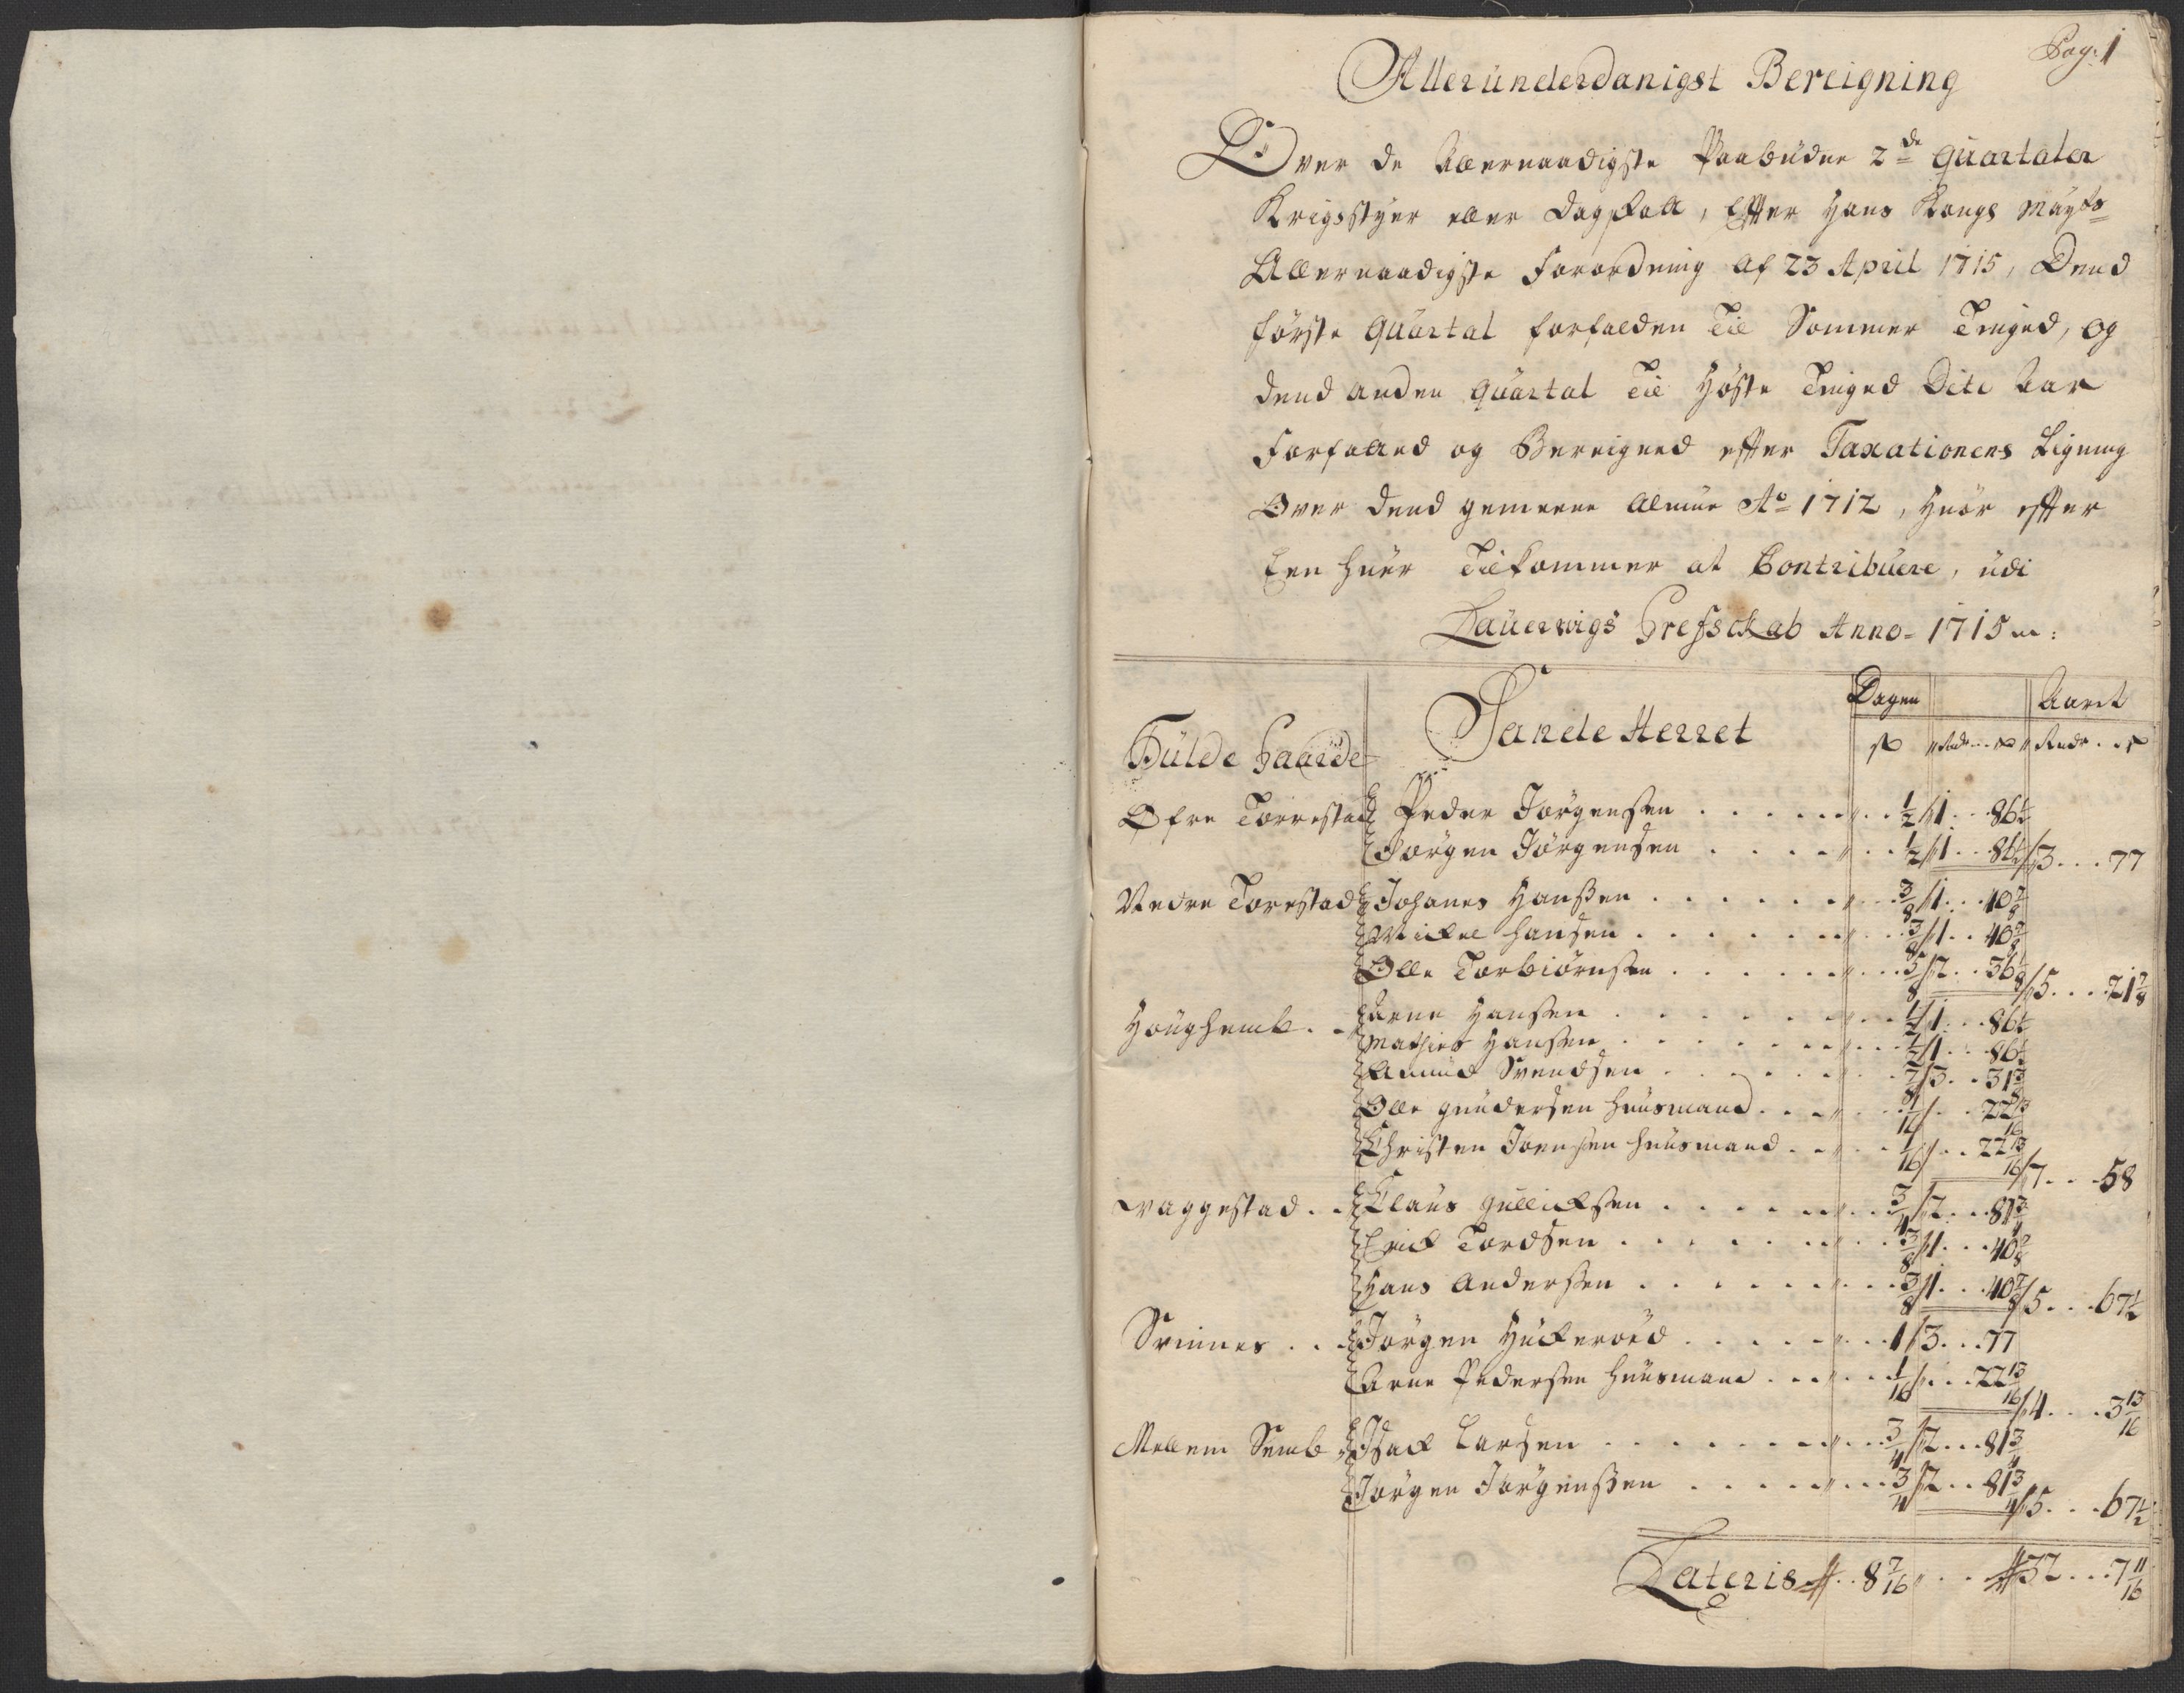 Pag: 1
Allerunderdanigst Bereigning
Over de Allernaadigste Paabudne 2de Quartaler
Krigsstyer eller Dagskatt, Efter Hans Kongl Mayts
Allernaadigste Forordning af 23 April 1715, Dend
første Quartal forfalden Til Sommer Tinged, og
dend anden Quartal Til Høste Tinged Dito Aar
Forfatted og Bereigned efter Taxationens Ligning
Over dend gemeene Almue Ao 1712, Huor efter
Een huer Tilkommer at Contribuere, udi
Lauervigs Grefschab Anno 1715
Dagen Aaret
Fulde Gaarde Sande Herret
ß Rdr ß Rdr ß
Ofre Torrestad Peder Jørgensen 1/2 1 86 1/2
Jørgen Jørgensen 1/2 1 86 1/2 3 77
Nedre Torestad Johanes Hansen 3/8 1 40 7/8
Mickel Hansen 3/8 1 40 7/8
Olle Torbiørnsen 5/8 2 36 1/8 5 21 7/8
Houghemb Arne Hansen 1/2 1 86 1/2
Mathies Hansen 1/2 1 86 1/2
Amund Svendsen 7/8 3 31 3/8
Olle Gundersen Huusmand 1/16 22 13/16
Christen Joensen Huusmand 1/16 22 13/16 7 58
Vaggestad Claus Gullicksen 3/4 2 81 3/4
Erick Tordsen 3/8 1 40 7/8
Hans Andersen 3/8 1 40 7/8 5 67 1/2
Svinnes Jørgen Huckeroed 1 3 77
Arne Pedersen Huusmand 1/16 22 13/16 4 3 13/16
Mellem Semb Isack Larsen 3/4 2 81 3/4
Jørgen Jørgensen 3/4 2 81 3/4 5 67 1/2
Lateris 8 7/16 32 7 11/16